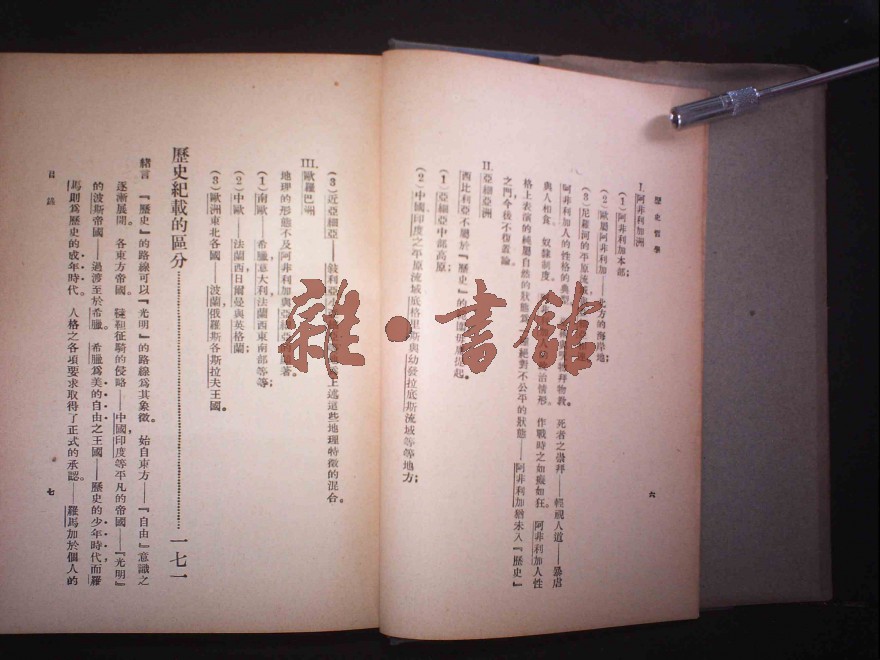 歷史哲學
I. 阿非利加洲
(1)阿非利加本部;
(2)歐屬阿非利加——北方的海岸地;
(3)尼羅河的平原流域
阿非利加人的性格的典型 拜物教。 死者之崇拜——輕視人道——暴虐
與人相食。 奴隸制度。 政治情形。 作戰時之如癡如狂。 阿非利加人性
格上表演的純屬自然的狀態 絕對不公平的狀態——阿非利加猶未入『歷史』
之門今後不復蓋論。
II. 亞細亞洲
西比利亞不屬於『歷史』的
(1)亞細亞中部高原;
(2)中國印度之平原流域底格里斯與幼發拉底斯流域等等地方;
六
(3)近亞細亞——敍利亞小 上述這些地理特徵的混合。
III. 歐羅巴洲
地理的形態不及阿非利加與亞細亞的顯著。
(1)南歐——希臘意大利,法蘭西東南部等等;
(2)中歐——法蘭西日爾曼與英格蘭;
(3)歐洲東北各國——波蘭俄羅斯各斯拉夫王國。
歷史紀載的區分……一七一
緒言 『歷史』的路線可以『光明』的路線爲其象徵。 始自東方——『自由』意識之
逐漸展開。 各東方帝國。 韃靼征騎的侵略——中國,印度等平凡的帝國——『光明』
的波斯帝國——過渡至於希臘。 希臘爲美的自由之王國——歷史的少年時代,而羅
馬則爲歷史的成年時代。 人格之各項要求取得了正式的承認。——羅馬加於個人的
目錄
七
雜·書館